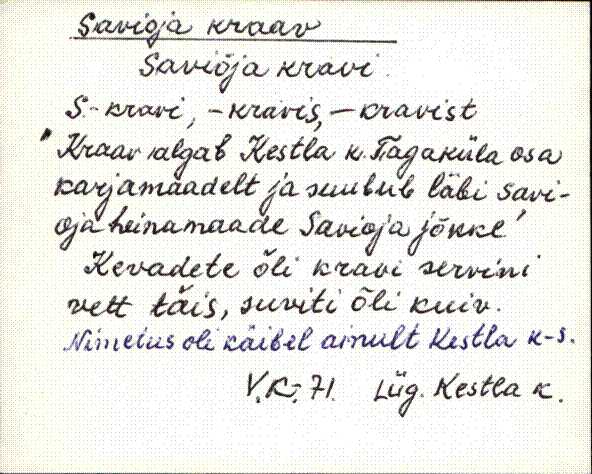 Savioja kraav
Saviõja kravi
S.- kravi, -kravis, -kravist
"Kraav algab Kestla k. Tagaküla osa
karjamaadelt ja suubub läbi Savi-
oja heinamaade Savioja jõkke"
Kevadete õli kravi servini
vett täis, suviti õli kuiv.
Nimetus oli käibel ainult Kestla k-s.
V.K-71. Lüg. Kestla k.